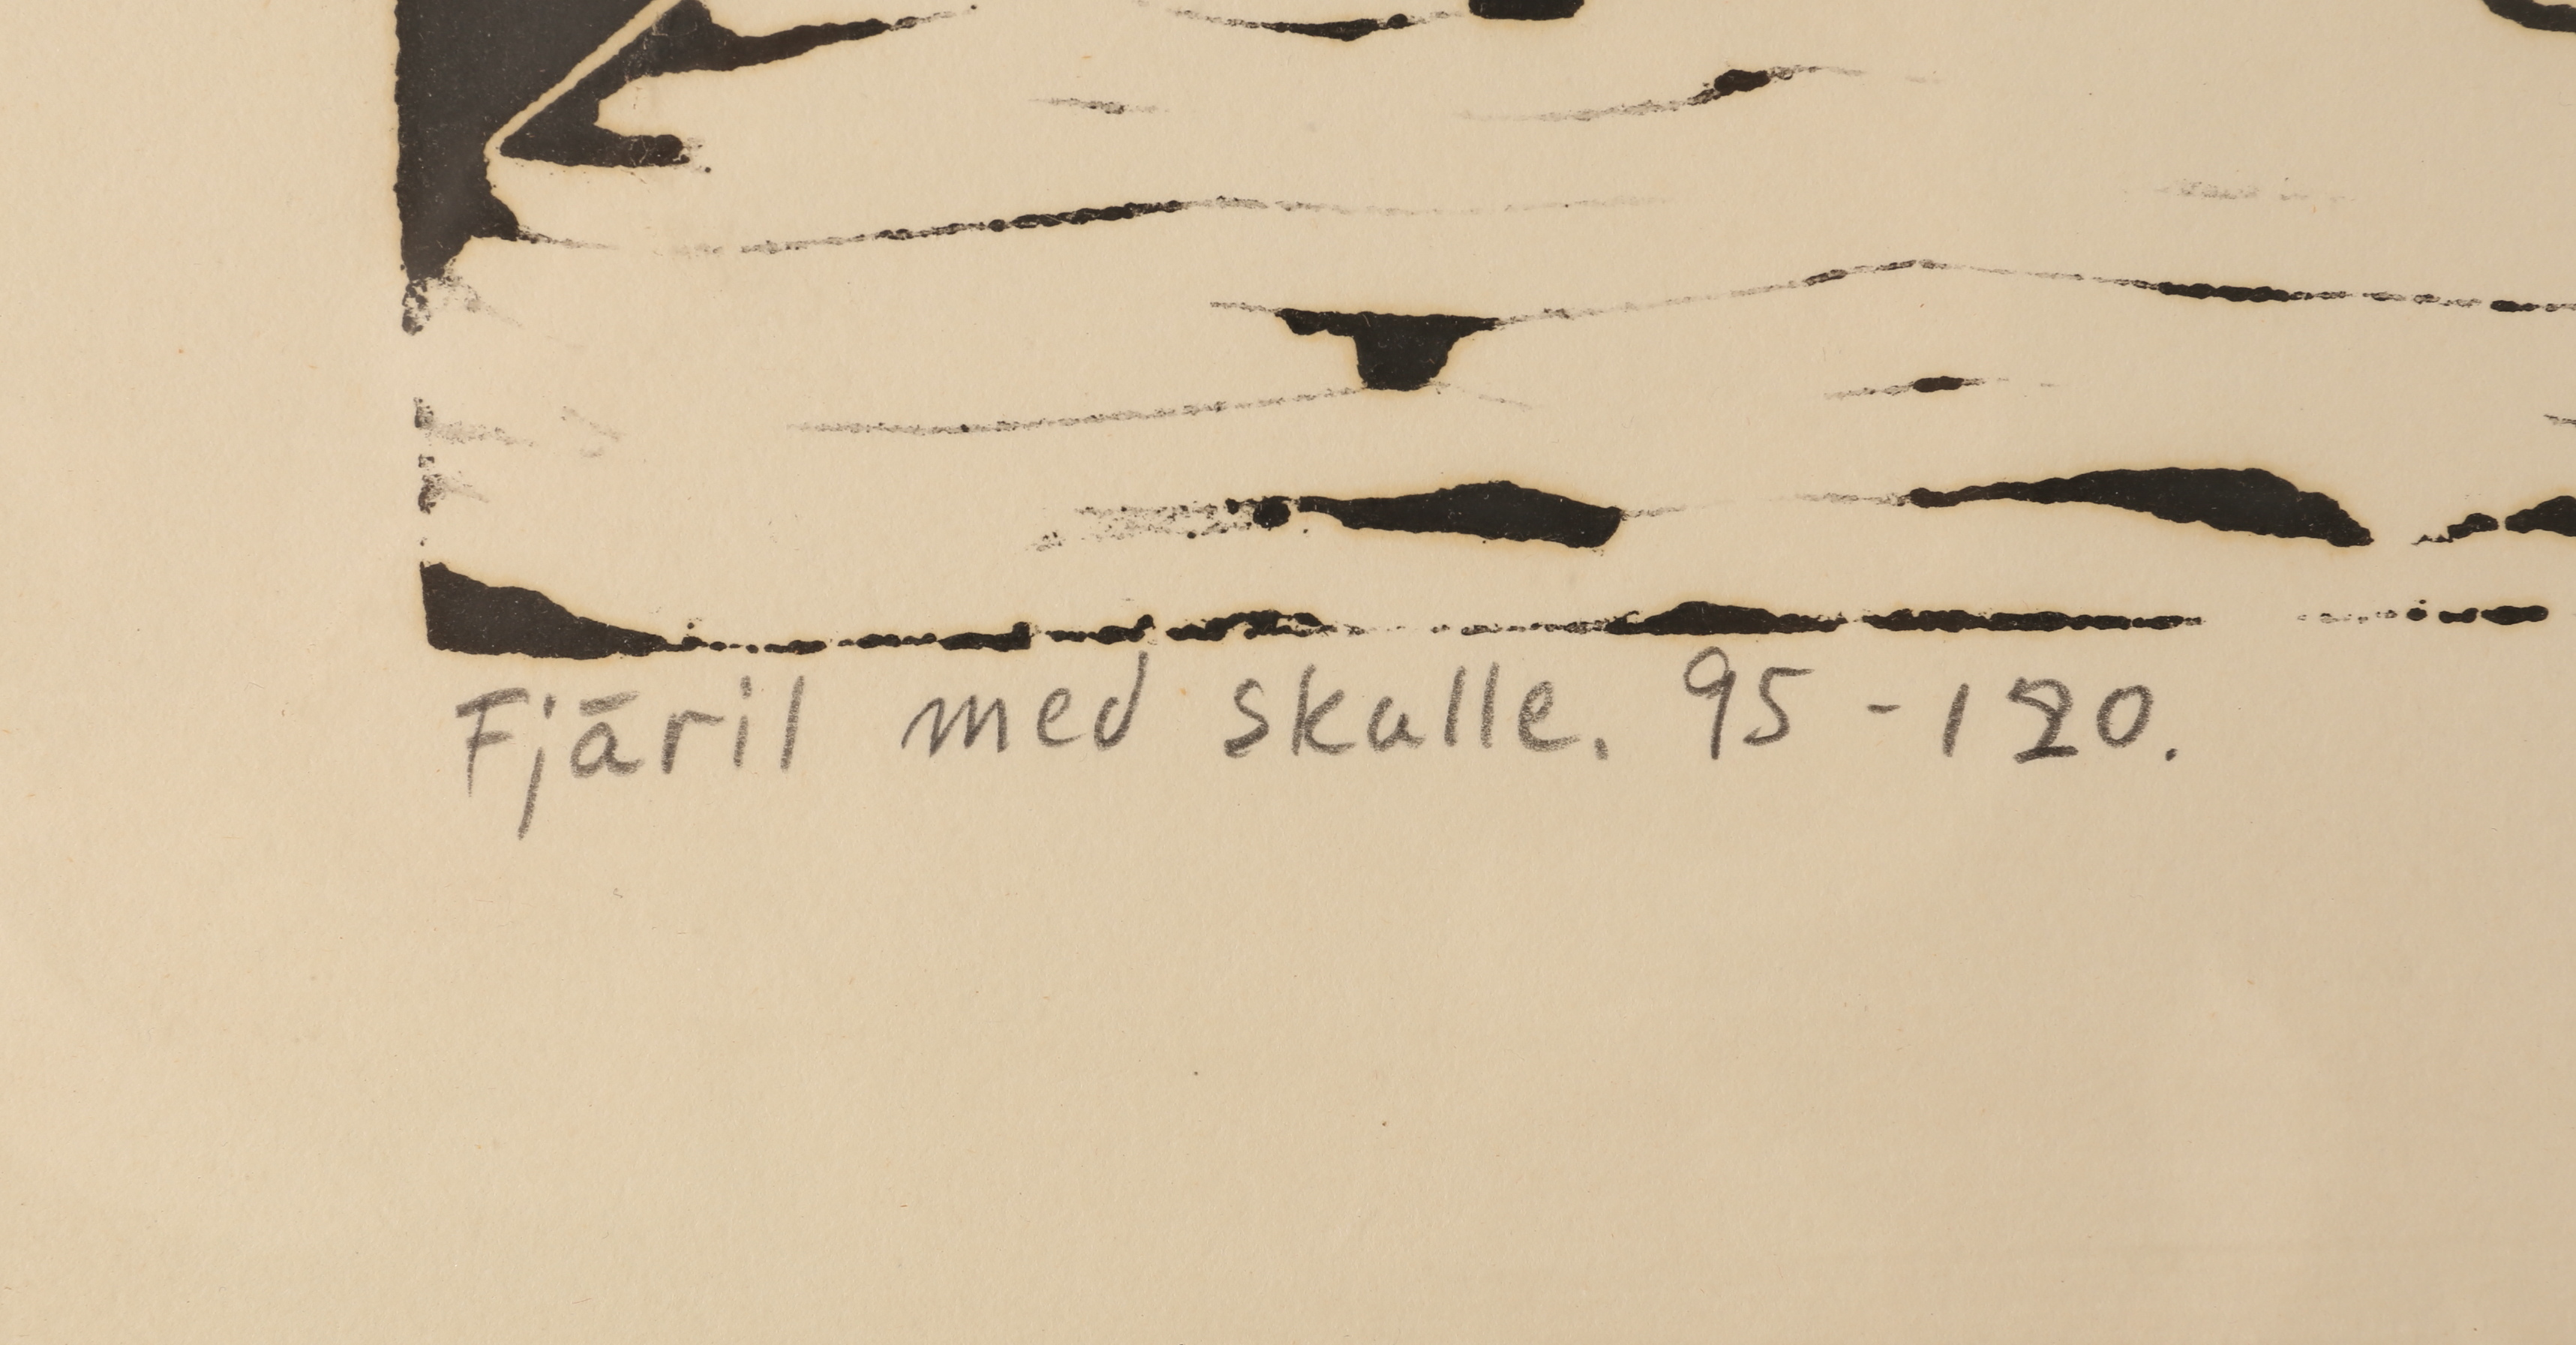 Fjäril med skalle. 95 - 120.